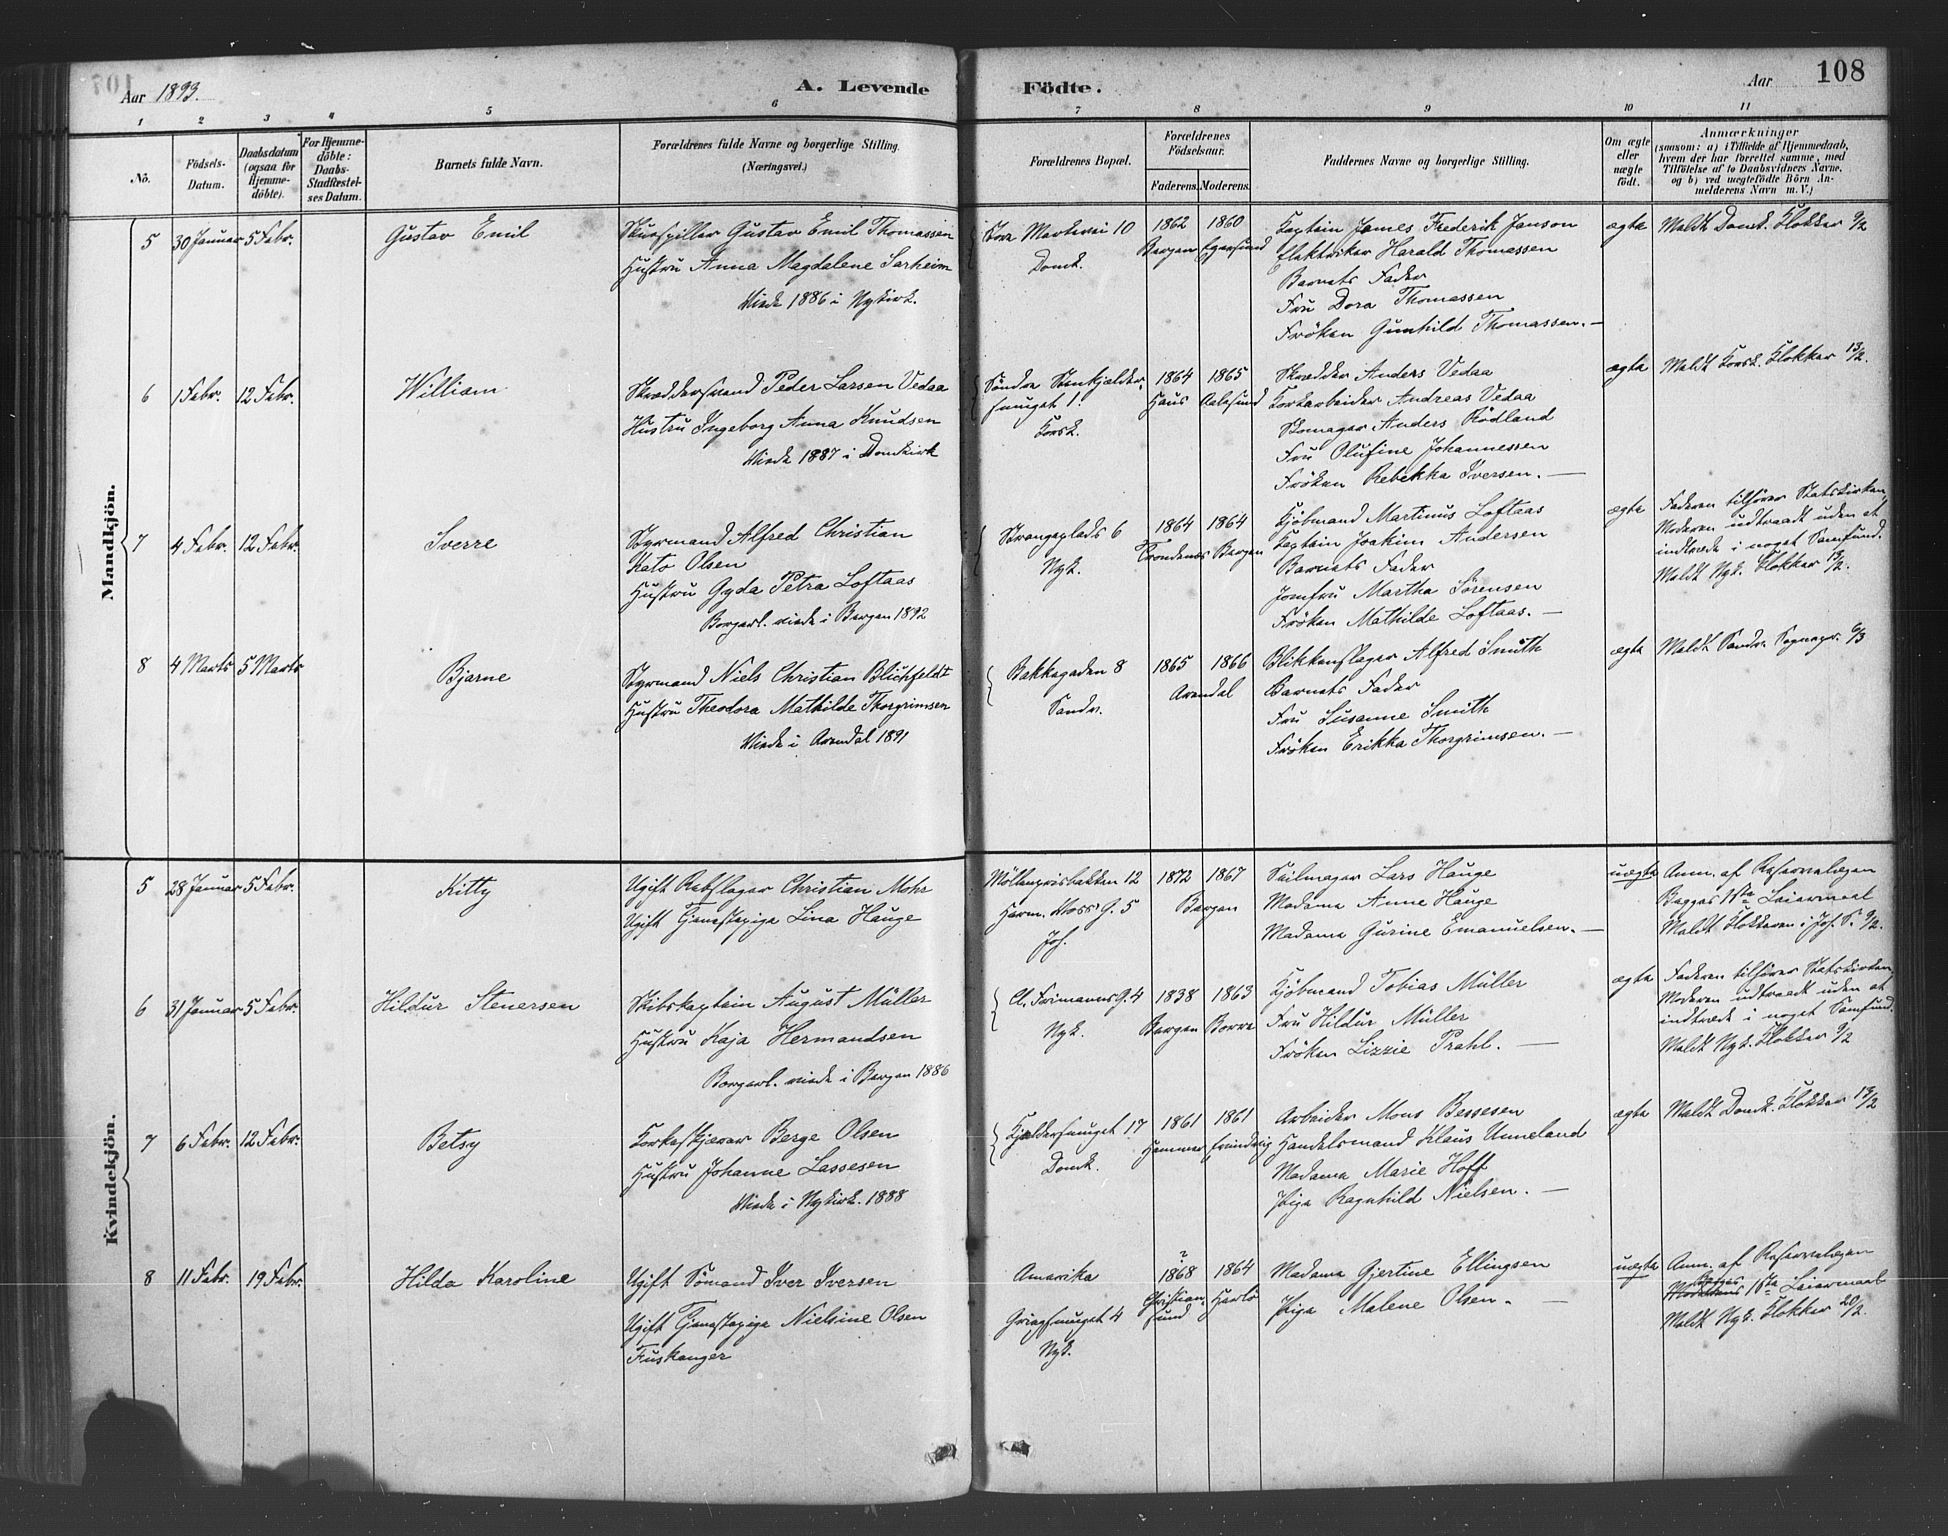 Aar 1893.
A. Levende
Födte.
Aar
108
1 2 3 4 5 6 7 8 9 10 11
No.
Födsels-
Datum.
Daabsdatum
(ogsaa for
Hjemme-
döbte).
For Hjemme-
döbte:
Daabs-
Stadfæstel-
ses Datum.
Barnets fulde Navn.
Forældrenes fulde Navne og borgerlige Stilling.
(Næringsvei.)
Forældrenes Bopæl.
Forældrenes
Födselsaar.
Faderens. Moderens.
Faddernes Navne og borgerlige Stilling.
Om ægte
eller
uægte
födt.
Anmærkninger
(saasom: a) i Tilfælde af Hjemmedaab,
hvem der har forrettet samme, med
Tilföielse af to Daabsvidners Navne,
og b) ved uægtefödte Börn An-
melderens Navn m. V.)
Mandkjön.
5 30 Januar 5 Febr.
Gustav Emil
Skuespiller Gustav Emil Thomassen
Hustru Anna Magdalene Sørheim
Viede 1886 i Nykirk.
Store Markevei 10
Domk.
1862 1860
Bergen Egersund
Kaptein James Frederik Janson
Elektriker Harald Thomassen
Barnets Fader
Fru Dora Thomassen
Fröken Gunhild Thomassen. –
ægte
Meldt Domk. Klokker 9/2
6 1 Febr. 12 Febr.
William
Skræddersvend Peder Larsen Vedaa
Hustru Ingeborg Anna Knudsen
Viede 1887 i Domkirk
Söndre Stenkjelder-
smuget 1.
Korsk.
1864 1865
Haus Aalesund
Skrædder Anders Vedaa
Korkarbeider Andreas Vedaa
Skomager Anders Rödland
Fru Olufine Johannessen
Fröken Rebekka Iversen. –
ægte
Meldt Korsk. Klokker 13/2.
7 4 Febr. 12 Febr.
Sverre
Styrmand Alfred Christian
Kato Olsen
Hustru Gyda Petra Loftaas
Borgerl. viede i Bergen 1892
Strangeplads 6
Nyk.
1864 1864
Trondenæs Bergen
Kjöbmand Martinus Loftaas
Kaptein Joakim Andersen
Barnets Fader
Jomfru Martha Sörensen
Fröken Mathilde Loftaas. –
ægte
Faderen tilhörer Statskirken,
Moderen udtraadt uden at
indtræde i noget Samfund.
Meldt Nyk. Klokker 13/2.
8 4 Marts 5 Marts
Bjarne
Styrmand Niels Christian Blichfeldt
Hustru Theodora Mathilde Thorgrimsen
Viede i Arendal 1891
Bakkegaden 8
Sandv.
1865 1866
Arendal
Blikkenslager Alfred Smith
Barnets Fader
Fru Susanne Smith
Fröken Erikka Thorgrimsen. –
ægte
Meldt Sandv. Sognepr. 6/3
Kvindekjön.
5 28 Januar 5 Febr.
Kitty
Ugift Rebslager Christian Mohr
Ugift Tjenestepige Lina Hauge
Möllenprisbakken 12
Herm. Foss' G. 5
Joh.
1872 1867
Bergen
Seilmager Lars Hauge
Madame Anne Hauge
Madame Gurine Emanuelsen. –
uægte
Anm. af Reservelægen
Begges 1ste Leiermaal
Meldt Klokkeren i Joh. S. 9/2.
6 31 Januar 5 Febr.
Hildur Stenersen
Skibskaptein August Müller
Hustru Kaja Hermandsen
Borgerl. viede i Bergen 1886
Cl. Frimanns G. 4
Nyk.
1838 1863
Bergen Borre
Kjöbmand Tobias Müller
Fru Hildur Müller
Fröken Lizzie Prahl. –
ægte
Faderen tilhörer Statskirken,
Moderen udtraadt uden at
indtræde i noget Samfund.
Meldt Nyk. Klokker 9/2
7 6 Febr. 12 Febr.
Betsy
Korkeskjærer Berge Olsen
Hustru Johanne Lassesen
Viede i Nykirk. 1888
Kjeldersmuget 17
Domk.
1861 1861
Hammer Evindvig
Arbeider Mons Bessesen
Handelsmand Klaus Unneland
Madame Marie Hoff
Pige Ragnhild Nielsen. –
ægte
Meldt Domk. Klokker 13/2
8 11 Febr. 19 Febr.
Hilda Karoline
Ugift Sömand Iver Iversen
Ugift Tjenestepige Nielsine Olsen
Fuskanger
Amerika
Griegsmuget 4
Nyk.
?
1868 1864
Christian- Herlö
sund
Madame Gjertine Ellingsen
Pige Malene Olsen. –
uægte
Anm. af Reservelægen
Begges
Moderens 1ste Leiermaal
Meldt Nyk. Klokker 20/2.